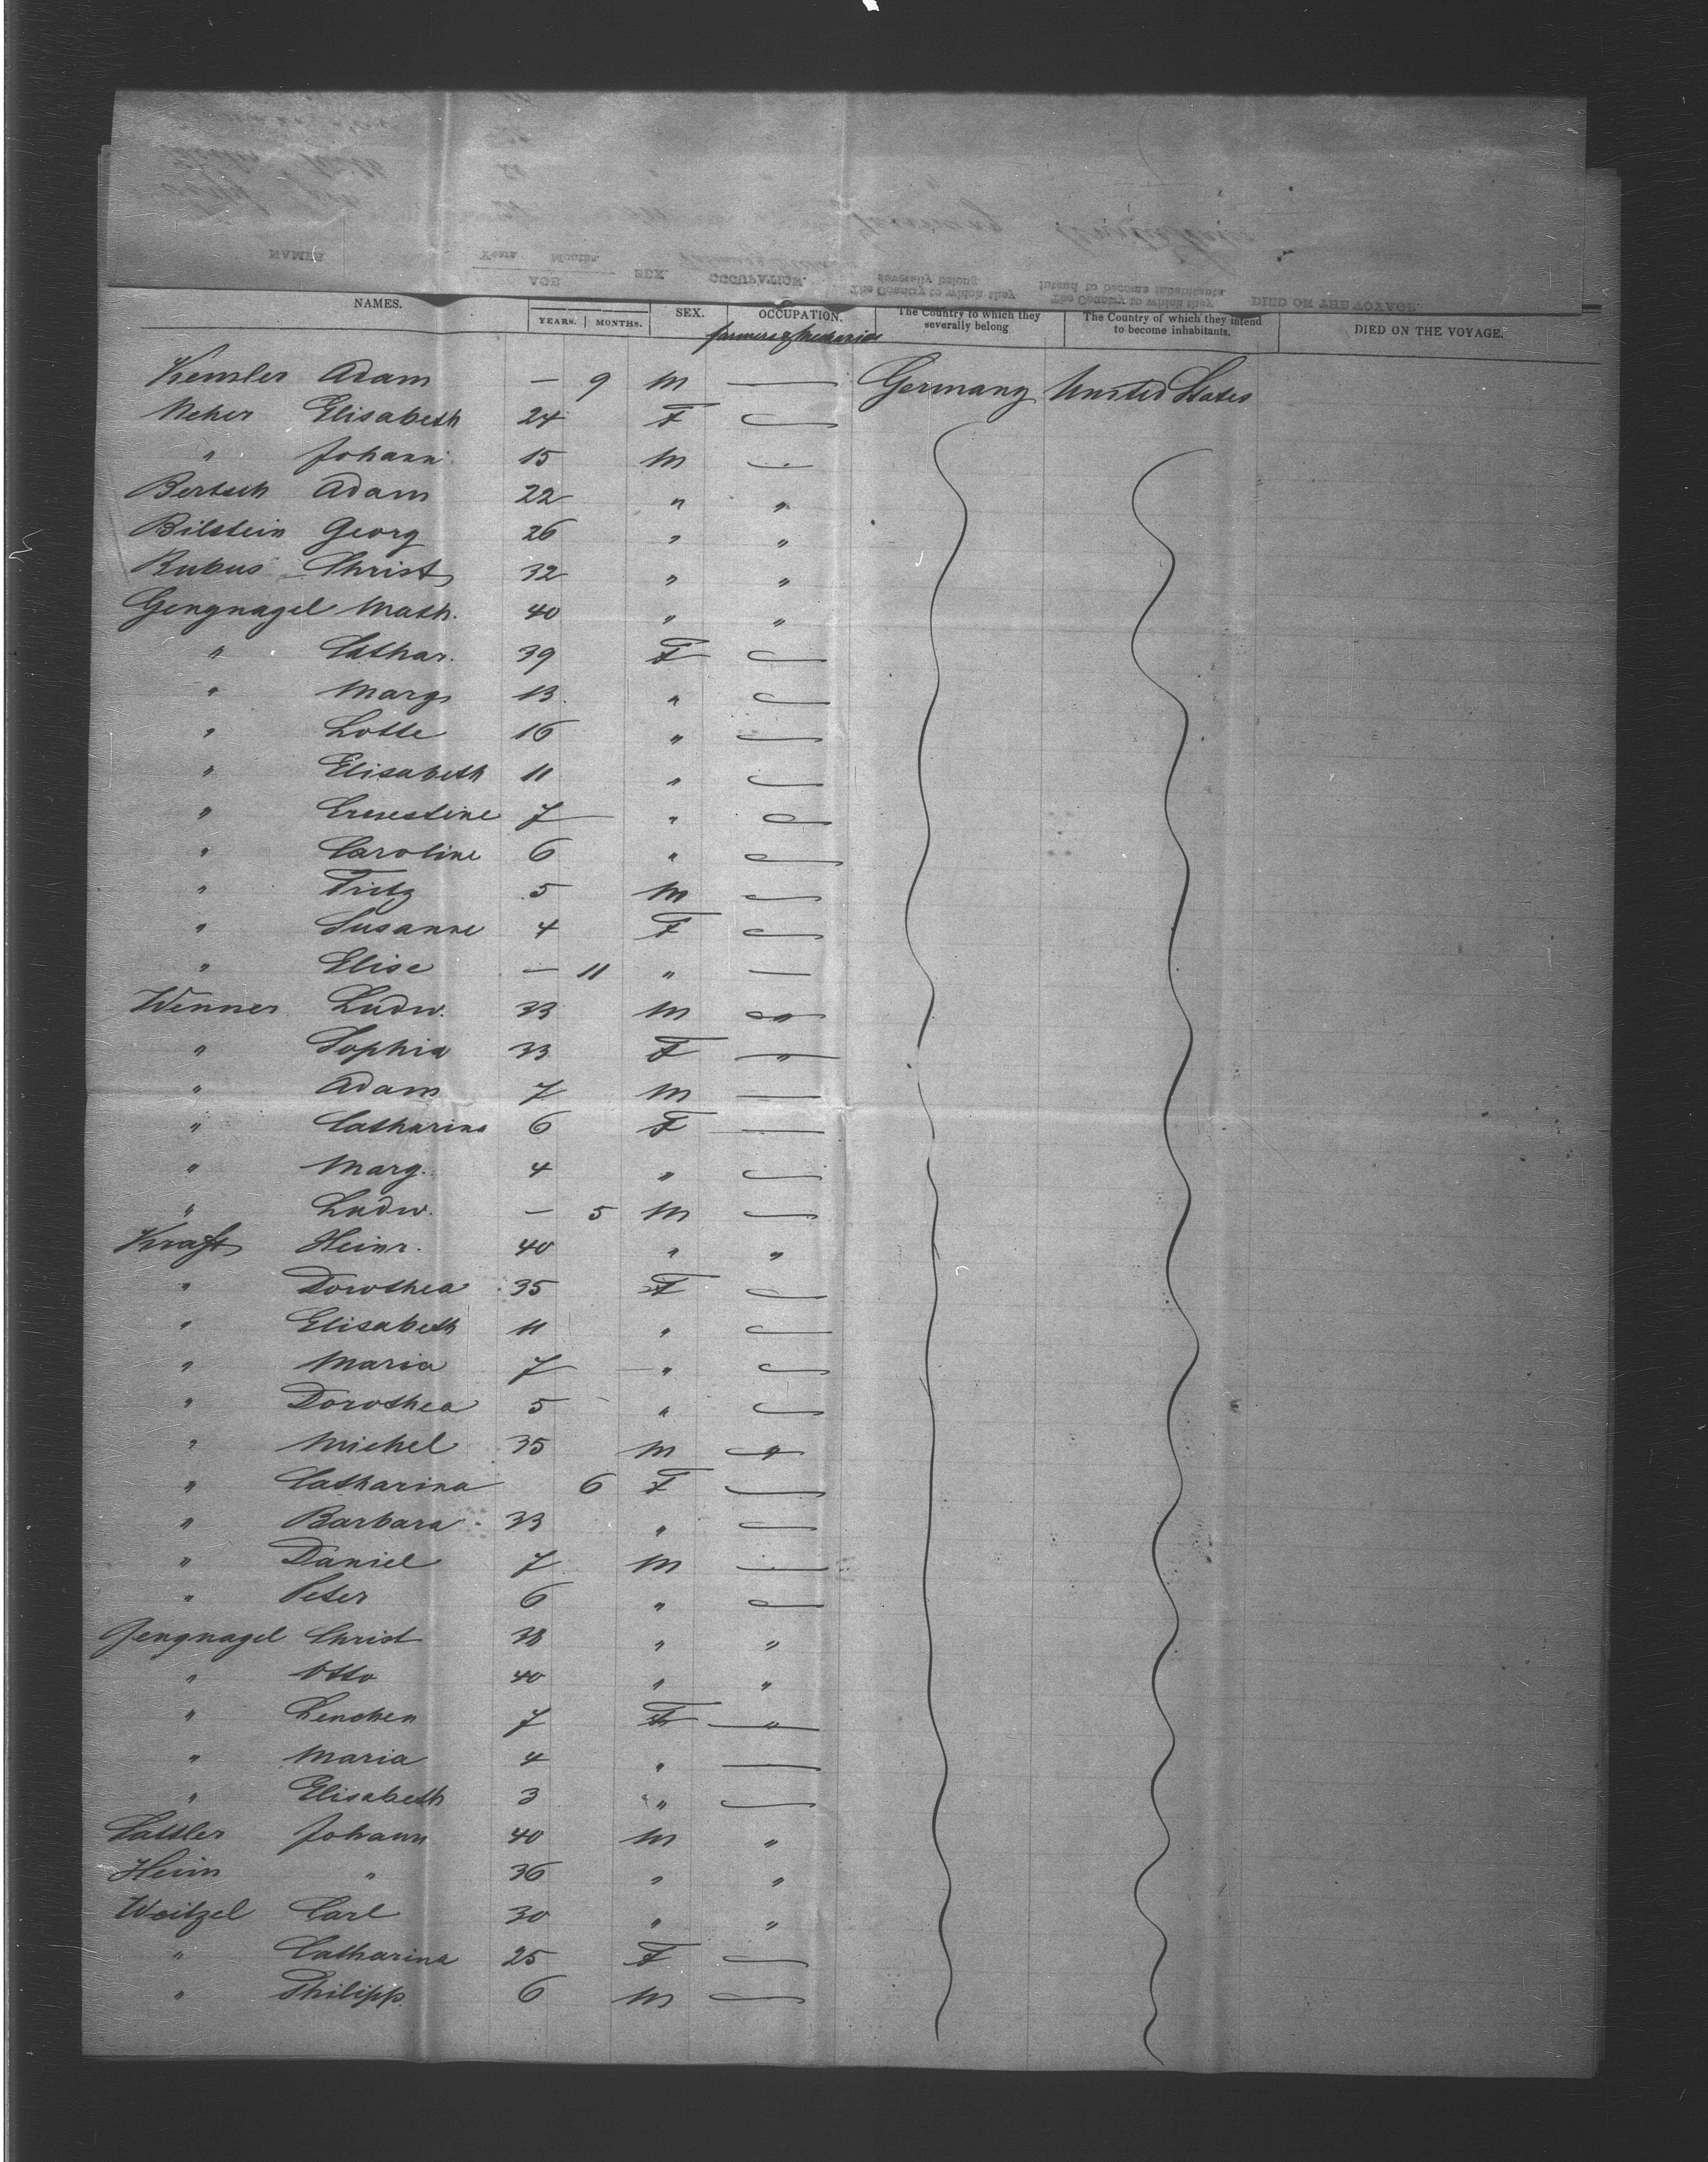 NAMES. YEARS. MONTHS. SEX. OCCUPATION. The Country to which they severally belong The Country of which they intend to become inhabitants. DIED ON THE VOYAGE.
farmers & Mechanics
Kemler Adam — 9 M — Germany United States
Neher Elisabeth 24 F —
" Johann 15 M —
Bertsch Adam 22 " "
Bilstein Georg 26 " "
Rubus Christ 32 " "
Gengnagel Math. 40 " "
" Cathar. 39 F —
" Marg 13 " —
" Lotte 16 " —
" Elisabeth 11 " —
" Ernestine 7 " —
" Caroline 6 " —
" Fritz 5 M —
" Susanne 4 F —
" Elise — 11 " —
Wenner Ludw. 33 M "
" Sophia 33 F "
" Adam 7 M —
" Catharina 6 F —
" Marg. 4 " —
" Ludw. — 5 M —
Kraft Heinr. 40 " "
" Dorothea 35 F —
" Elisabeth 11 " —
" Maria 7 " —
" Dorothea 5 " —
" Michel 35 M "
" Catharina 6 F —
" Barbara 33 " —
" Daniel 7 M —
" Peter 6 " —
Gengnagel Christ 38 " "
" Otto 40 " "
" Lenchen 7 F "
" Maria 4 " —
" Elisabeth 3 " —
Sattler Johann 40 M "
Heim " 36 " "
Weitzel Carl 30 " "
" Catharina 25 F —
" Philipp. 6 M —